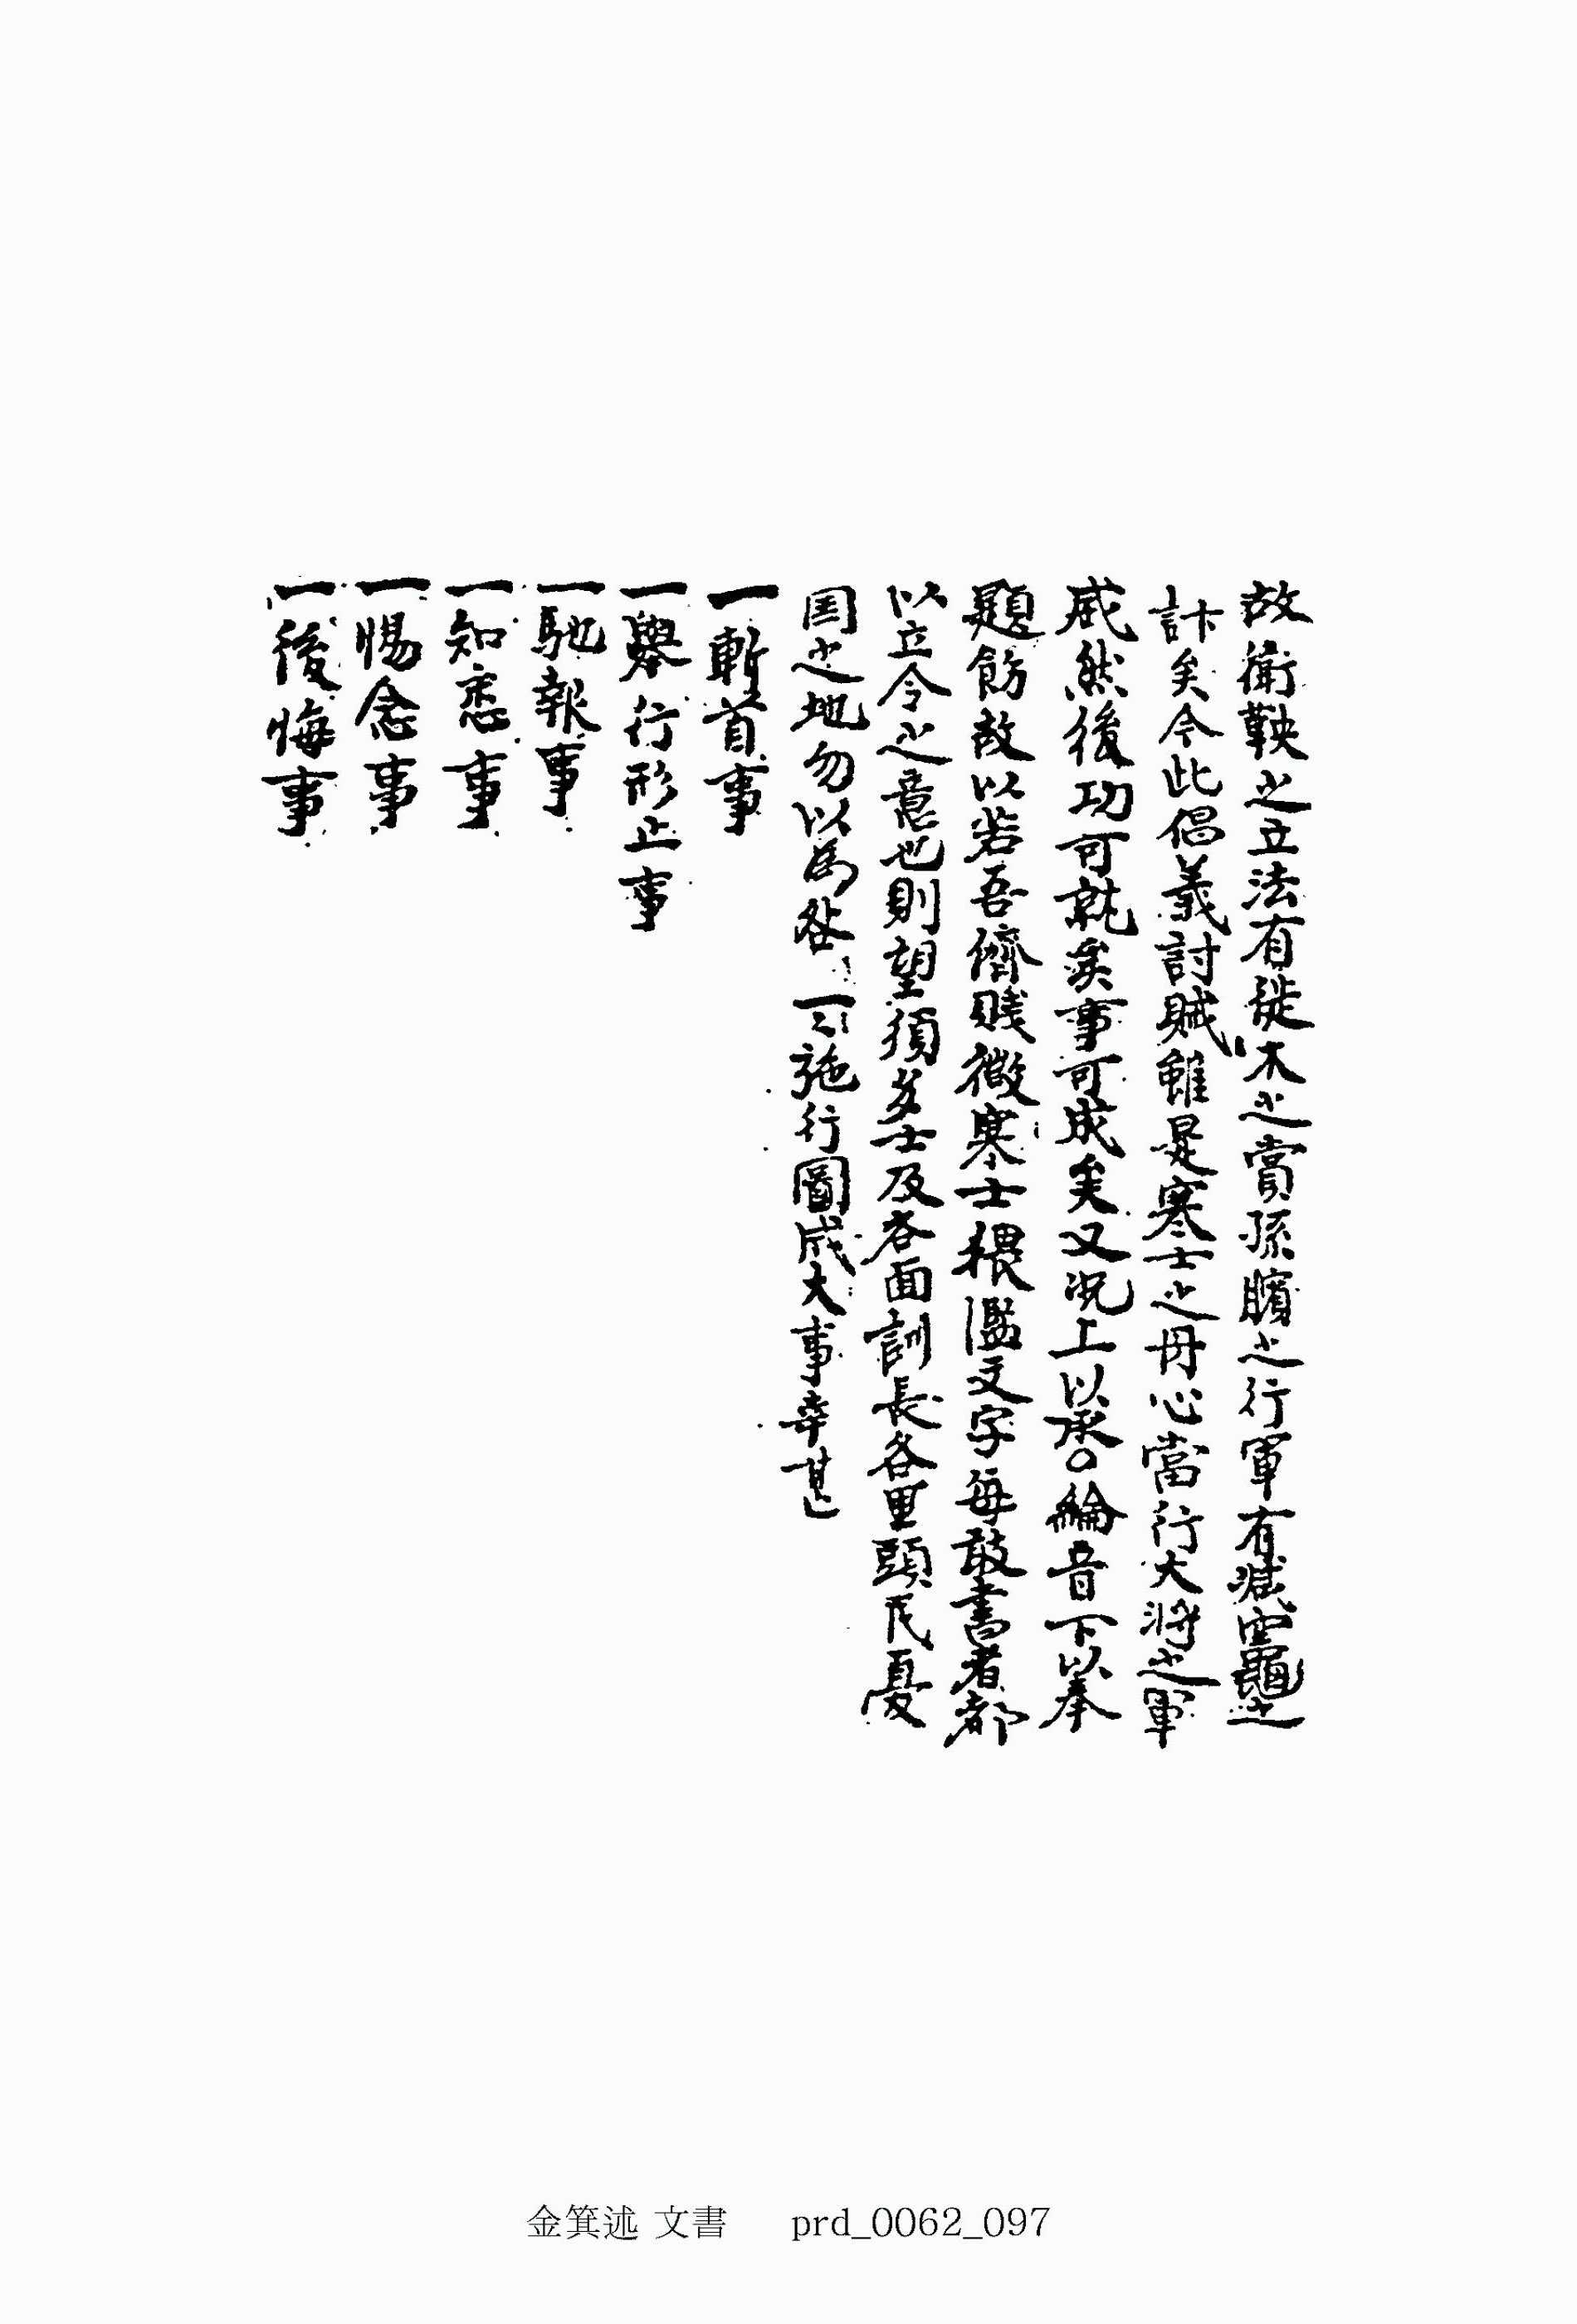 故衛鞅之立法有徙木之賞孫臏之行軍有減竈之
計矣今此倡義討賊雖是寒士之丹心當行大將之軍
威然後功可就矣事可成矣又况上以承○綸音下以奉
題飭故以若吾儕賤微寒士猥濫文字每敢書者都
以立令之意也則望須多士及各面訓長各里頭民憂
国之地勿以爲咎一〻施行圖成大事幸甚
一斬首事
一擧行形止事
一馳報事
一知悉事
一惕念事
一後悔事
金箕述 文書 prd_0062_097